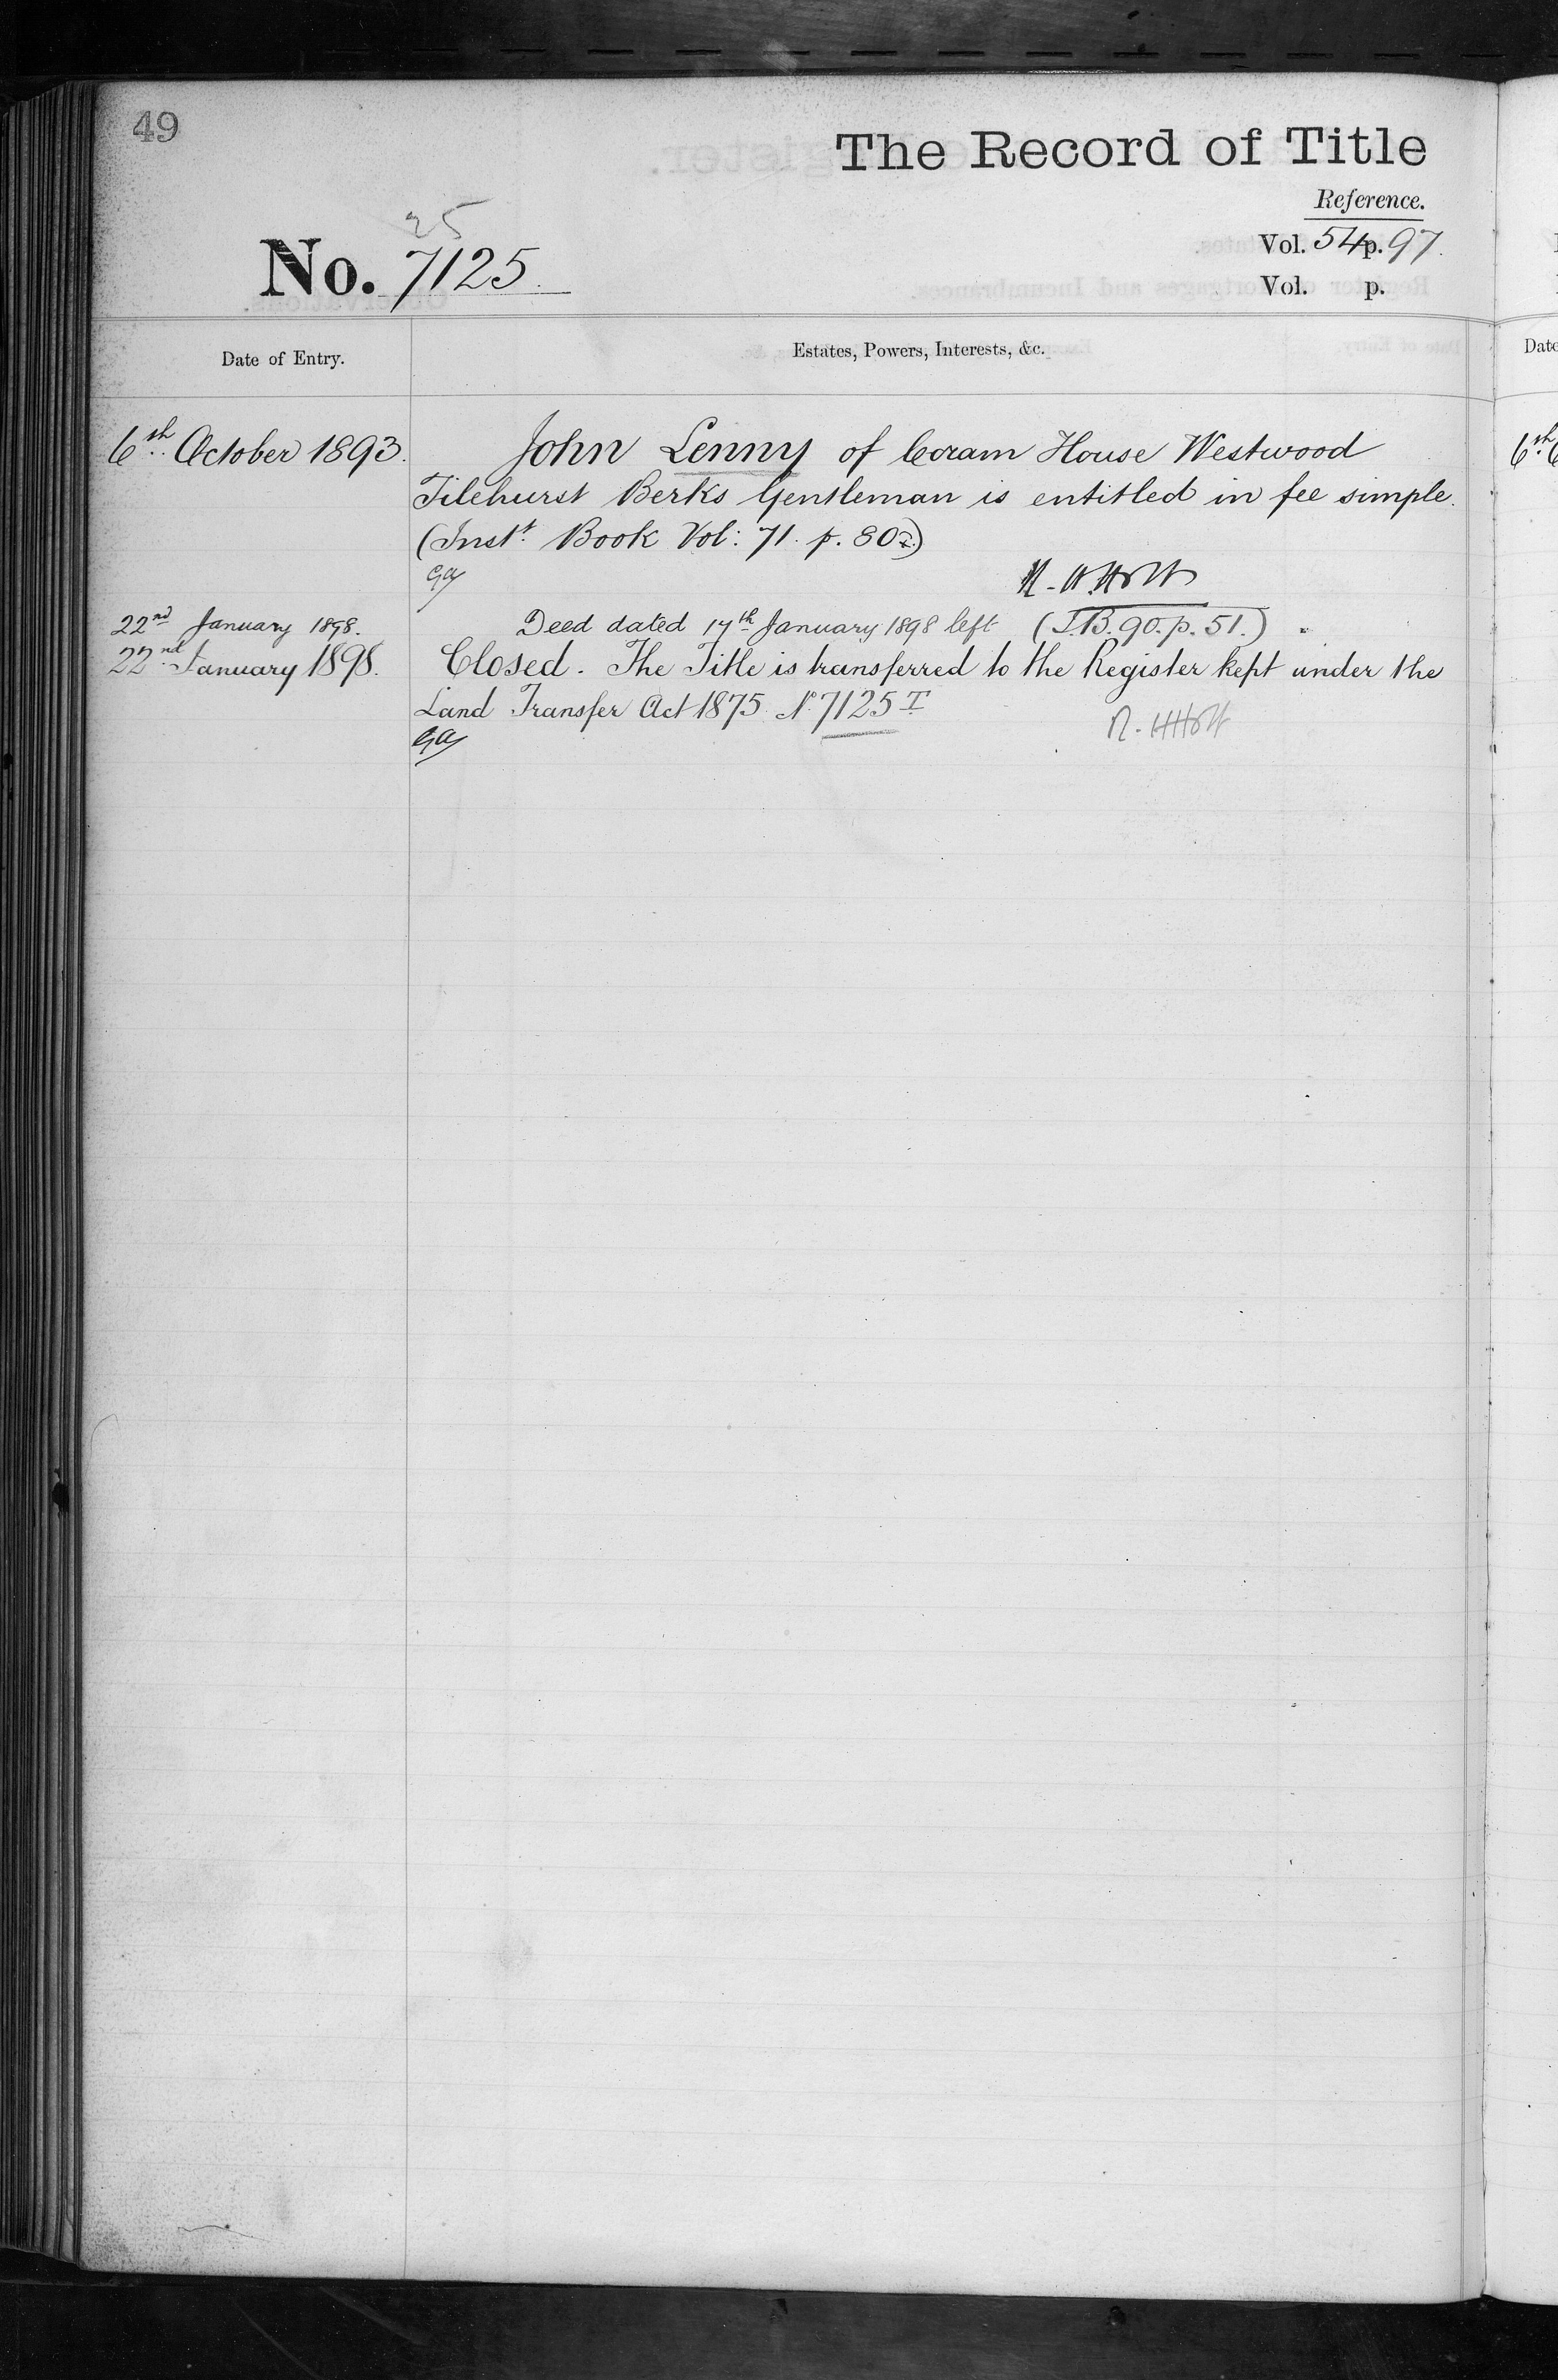 49
The Record of Title
Reference.
25
No. 7125.
Vol. 54 p. 97.
Vol. p.
Date of Entry.
Estates, Powers, Interests, &c.
Date
6th October 1893.
John Lenny of Coram House Westwood
6th
Tilehurst Berks Gentleman is entitled in fee simple.
(Instt. Book Vol: 71. p. 802.)
22nd January 1898.
Deed dated 17th January 1898 left (I.B. 90. p. 51.)
22nd January 1898.
Closed. The Title is transferred to the Register kept under the
Land Transfer Act 1875. No. 7125 T